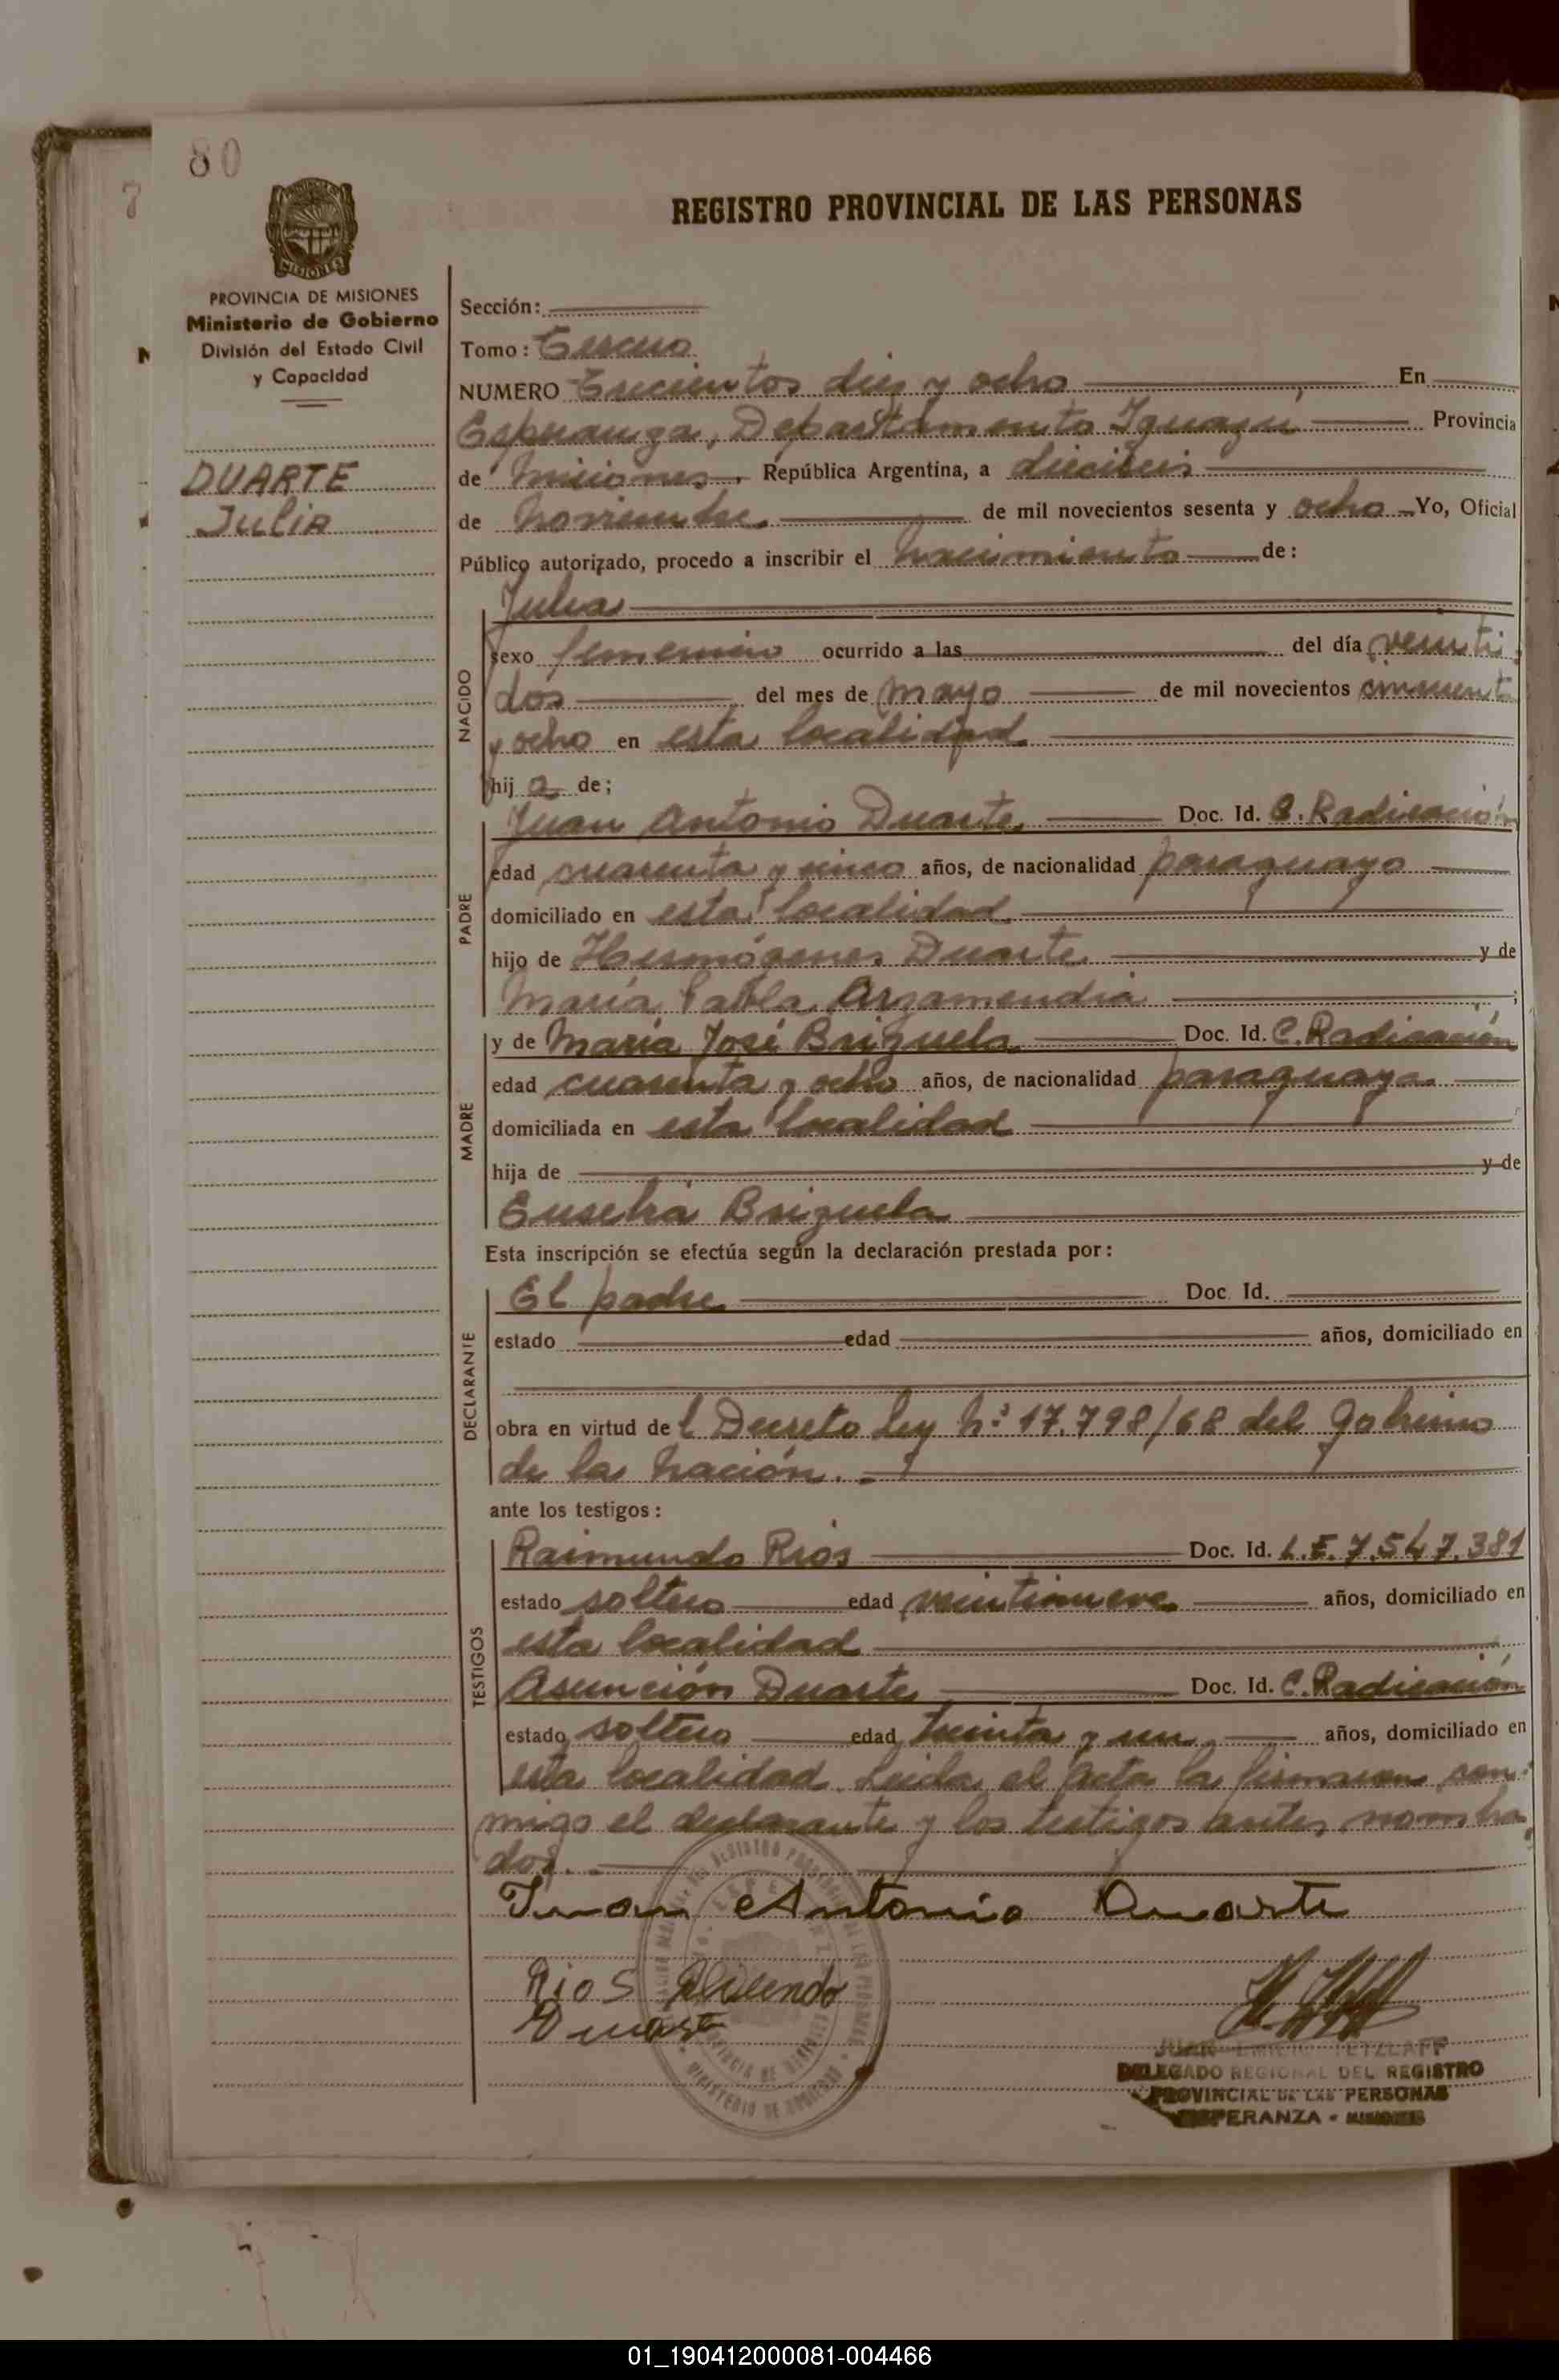 80
7
MISIONES
REGISTRO PROVINCIAL DE LAS PERSONAS
PROVINCIA DE MISIONES
Ministerio de Gobierno
División del Estado Civil
y Capacidad
DUARTE
Julia
Sección:
Tomo: Tercero
NUMERO Trecientos diez y ocho En
Esperanza, Departamento Iguazú, Provincia
de Misiones, República Argentina, a dieciseis
de Noviembre de mil novecientos sesenta y ocho Yo, Oficial
Público autorizado, procedo a inscribir el nacimiento de:
NACIDO
Julia
sexo femenino ocurrido a las del día veinti
dos del mes de mayo de mil novecientos cincuenta
y ocho en esta localidad
hija de;
PADRE
Juan Antonio Duarte Doc. Id. C. Radicación
edad cuarenta y cinco años, de nacionalidad paraguayo
domiciliado en esta localidad
hijo de Hermógenes Duarte y de
María Pabla Arzamendia ;
MADRE
y de María José Brizuela Doc. Id. C. Radicación
edad cuarenta y ocho años, de nacionalidad paraguaya
domiciliada en esta localidad
hija de y de
Eusebia Brizuela
Esta inscripción se efectúa según la declaración prestada por:
DECLARANTE
El padre Doc. Id.
estado edad años, domiciliado en
obra en virtud del Decreto Ley Nº 17.798/68 del Gobierno
de la Nación.
ante los testigos:
TESTIGOS
Raimundo Rios Doc. Id. L.E. 7.547.381
estado soltero edad veintinueve años, domiciliado en
esta localidad
Asunción Duarte Doc. Id. C. Radicación
estado soltero edad treinta y un años, domiciliado en
esta localidad. Leida el Acta la firmaron con
migo el declarante y los testigos antes nombra
dos.
Juan Antonio Duarte
Rios
Duarte
JUAN EMILIO TETZLAFF
DELEGADO REGIONAL DEL REGISTRO
PROVINCIAL DE LAS PERSONAS
ESPERANZA - MISIONES
01_190412000081-004466